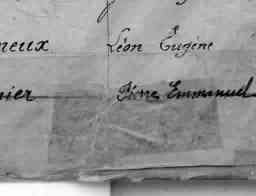 neux Léon Eugène
nier Pierre Emmanuel